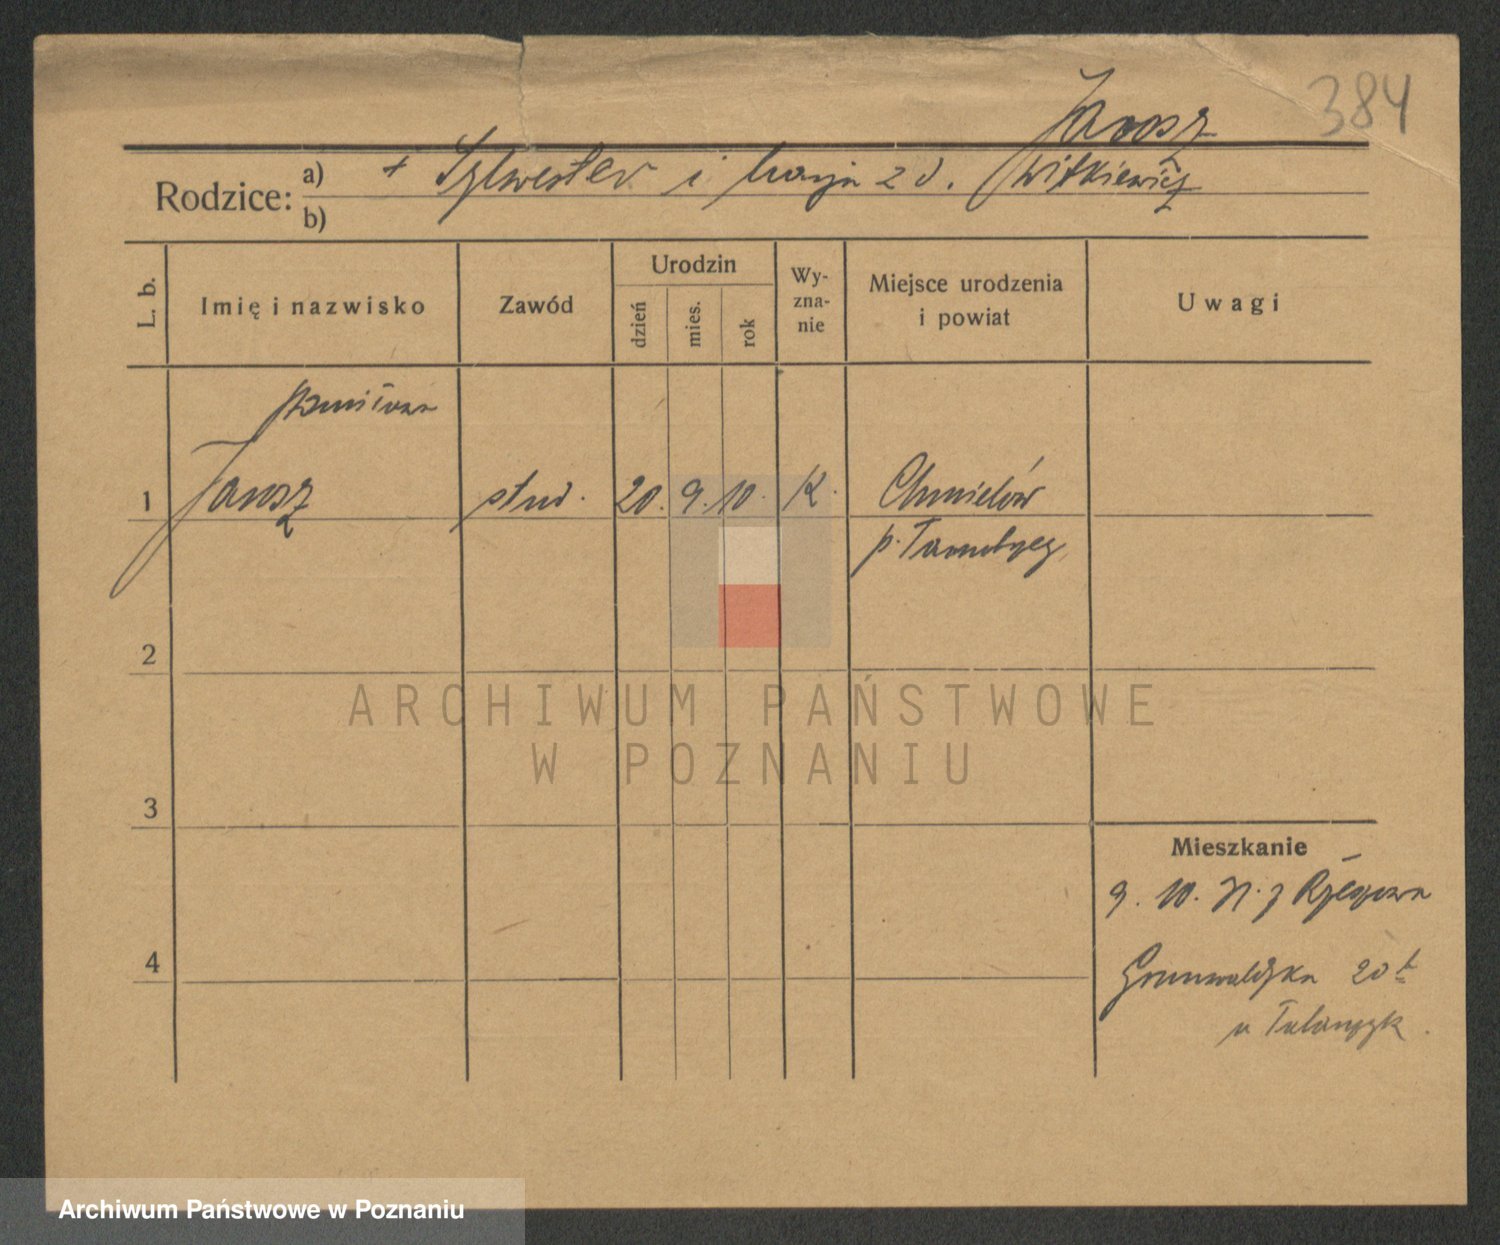 384
Jarosz
Rodzice: a) + Sylwester i Marja z d. Witkiewicz
b)
L. b.
Imię i nazwisko
Zawód
Urodzin
dzień
mies.
rok
Wy-
zna-
nie
Miejsce urodzenia
i powiat
Uwagi
1 Jarosz stud. 20. 9. 10. K. Chmielów
p. Tarnobrzeg
2
3
4
Mieszkanie
9. 10. z Rzeszowa
Grunwaldzka 20
u
ARCHIWUM PAŃSTWOWE
W POZNANIU
Archiwum Państwowe w Poznaniu